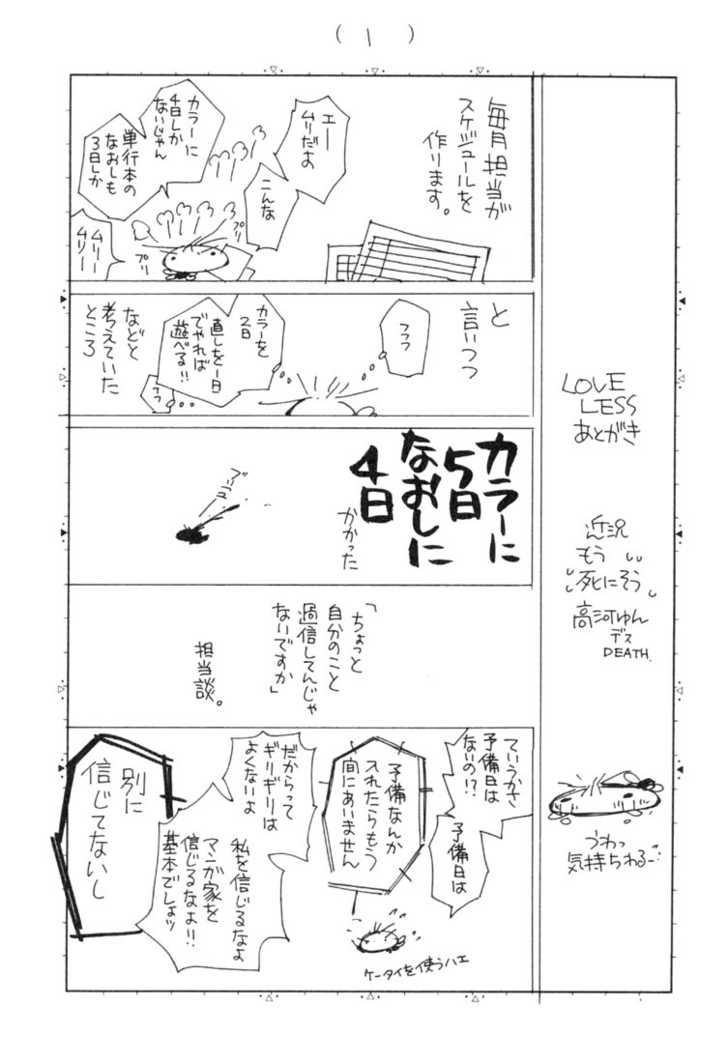 (1)
LOVE
LESS
あとがき
近況
もう
死にそう
高河ゆん
デス
DEATH.
うわっ
気持ちわるー
毎月担当が
スケジュールを
作ります。
エー
ムリだよ
こんな
カラーに
4日しか
ないじゃん
単行本の
なおしも
3日しか
ムリー
ムリー
プリ
プリ
と
言いつつ
フフフ
カラーを
2日
直しを一日
でやれば
遊べる!!
フフ
などと
考えていた
ところ
カラーに
5日
なおしに
4日
かかった
「ちょっと
自分のこと
過信してんじゃ
ないですか」
担当談。
ていうかさ
予備日は
ないの!?
予備日は
予備なんか
入れたらもう
間にあいません
ケータイを使うハエ
だからって
ギリギリは
よくないよ
私を信じるなよ
マンガ家を
信じるなよ!!
基本でしょッ
別に
信じてないし